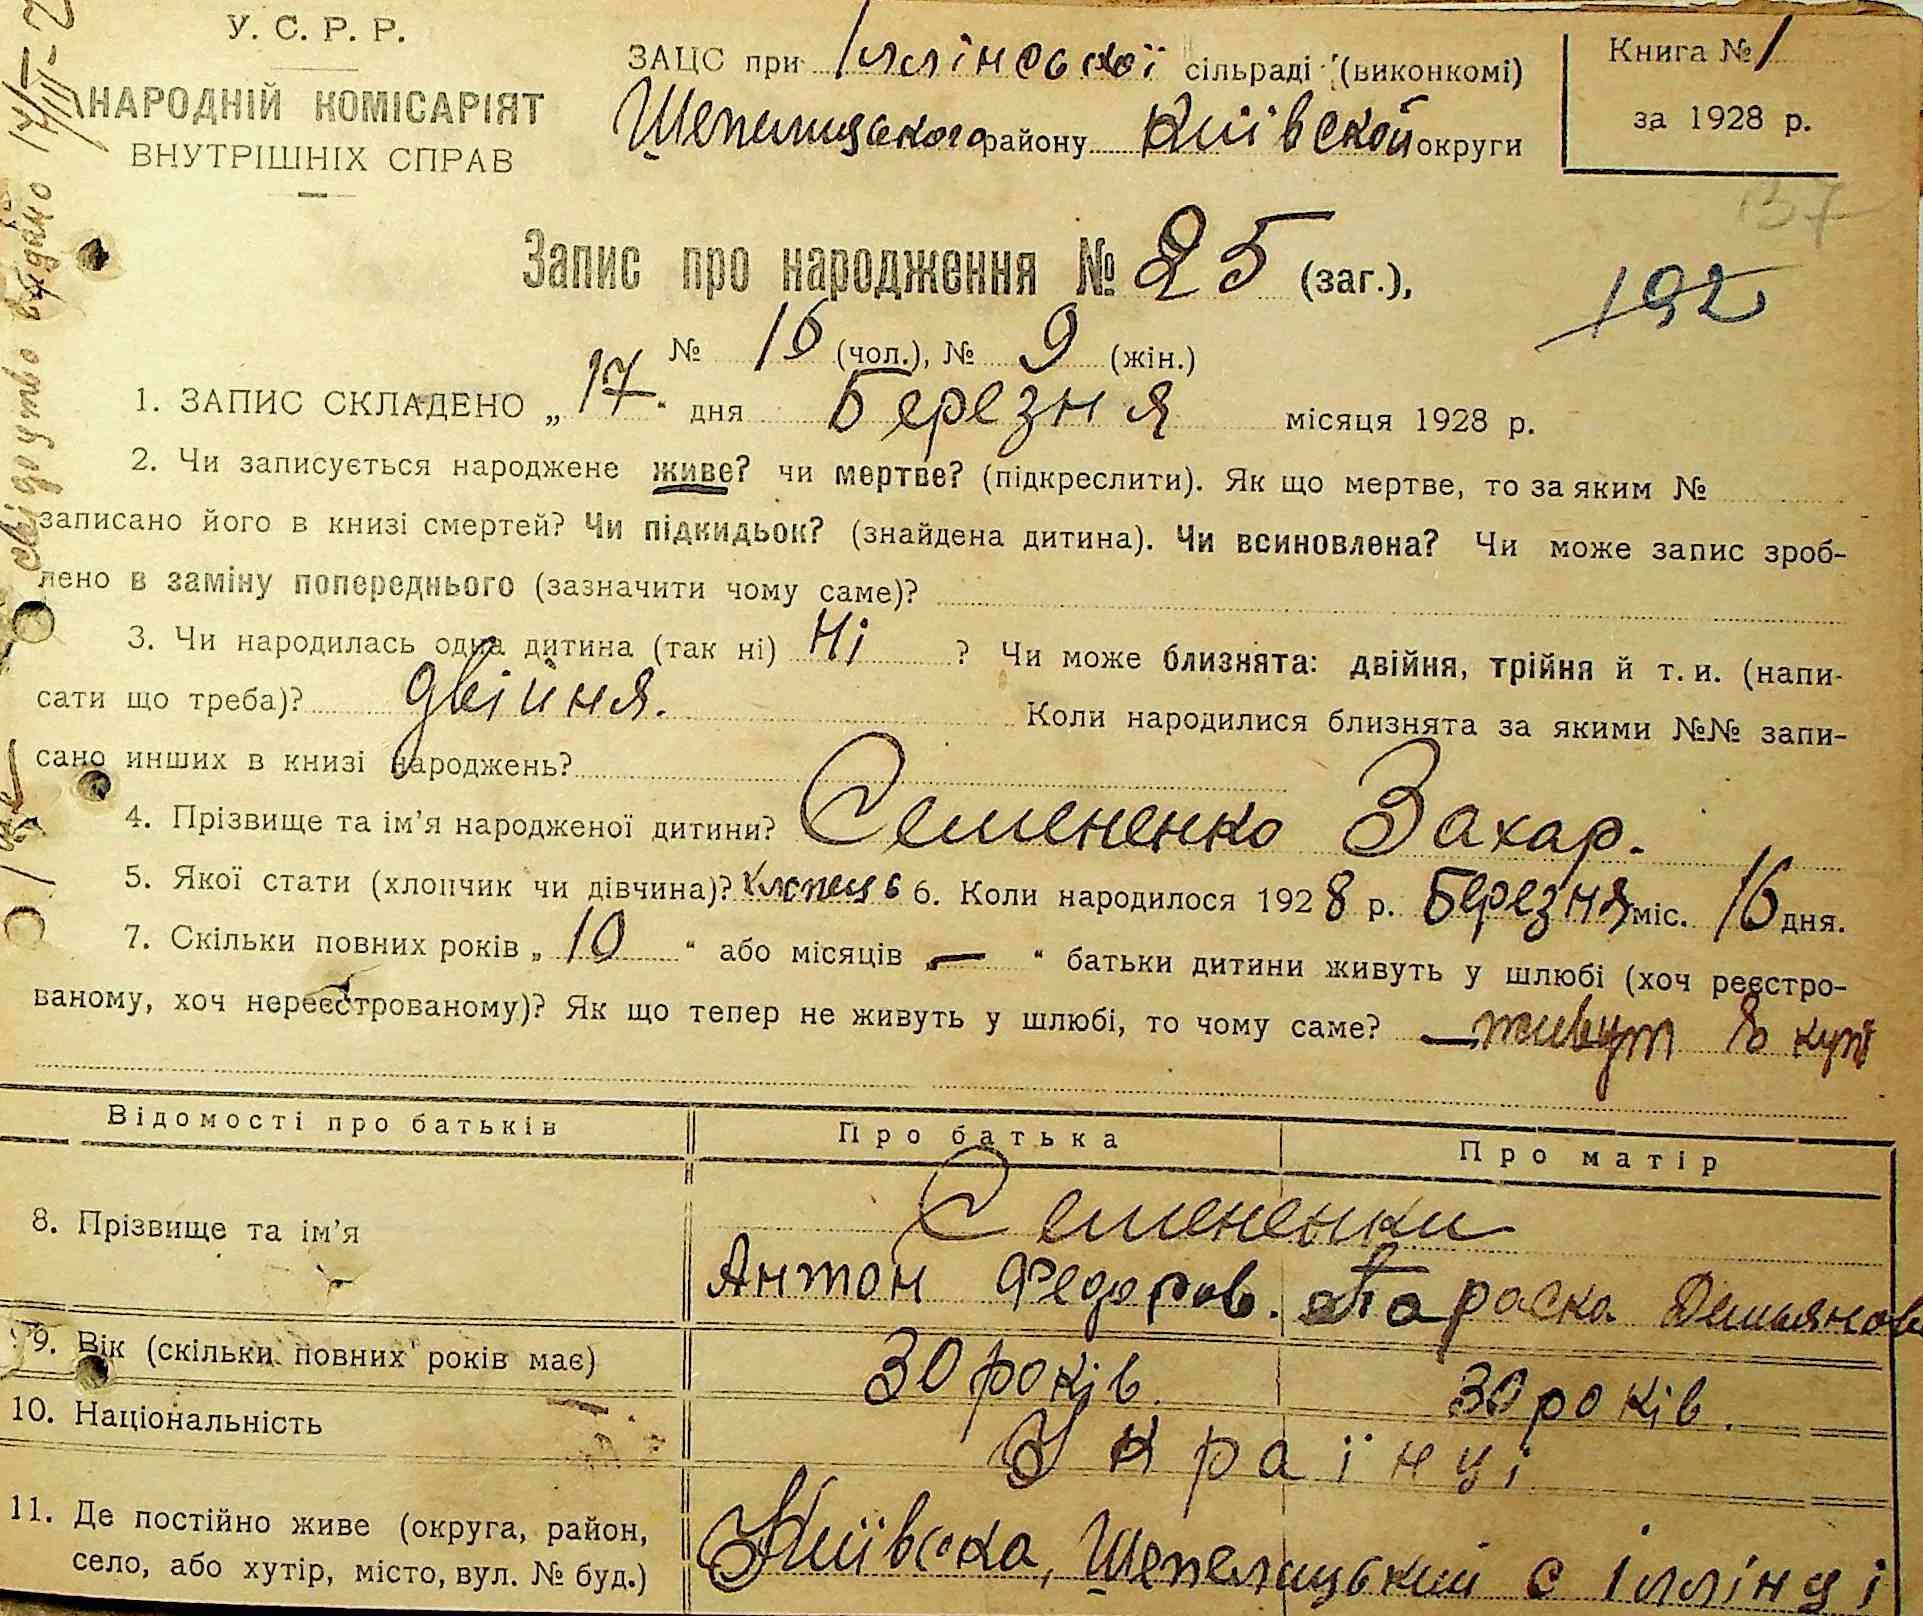 У. С. Р. Р.
НАРОДНІЙ КОМІСАРІЯТ
ВНУТРІШНІХ СПРАВ
ЗАЦС при Іллінської сільраді (виконкомі)
Шепелицького району Київской округи
Книга № 1
за 1928 р.
137
192
Запис про народження № 25 (заг.),
№ 16 (чол.), № 9 (жін.)
1. ЗАПИС СКЛАДЕНО „17" дня Березня місяця 1928 р.
2. Чи записується народжене живе? чи мертве? (підкреслити). Як що мертве, то за яким №
записано його в книзі смертей? Чи підкидьок? (знайдена дитина). Чи всиновлена? Чи може запис зроб-
лено в заміну попереднього (зазначити чому саме)?
3. Чи народилась одна дитина (так ні) Ні ? Чи може близнята: двійня, трійня й т. и. (напи-
сати що треба)? двійня. Коли народилися близнята за якими №№ запи-
сано инших в книзі народжень?
4. Прізвище та ім'я народженої дитини? Семененко Захар.
5. Якої стати (хлопчик чи дівчина)? хлопець 6. Коли народилося 1928 р. Березня міс. 16 дня.
7. Скільки повних років „10" або місяців „—" батьки дитини живуть у шлюбі (хоч реєстро-
ваному, хоч нереєстрованому)? Як що тепер не живуть у шлюбі, то чому саме? — живут в купі
Відомості про батьків Про батька Про матір
8. Прізвище та ім'я Семененки
Антон Федоров. Параска Демьянов
9. Вік (скільки повних років має) 30 років. 30 років.
10. Національність Українці
11. Де постійно живе (округа, район, Київська, Шепелицький с Іллінці
село, або хутір, місто, вул. № буд.)
свідоцтво видано